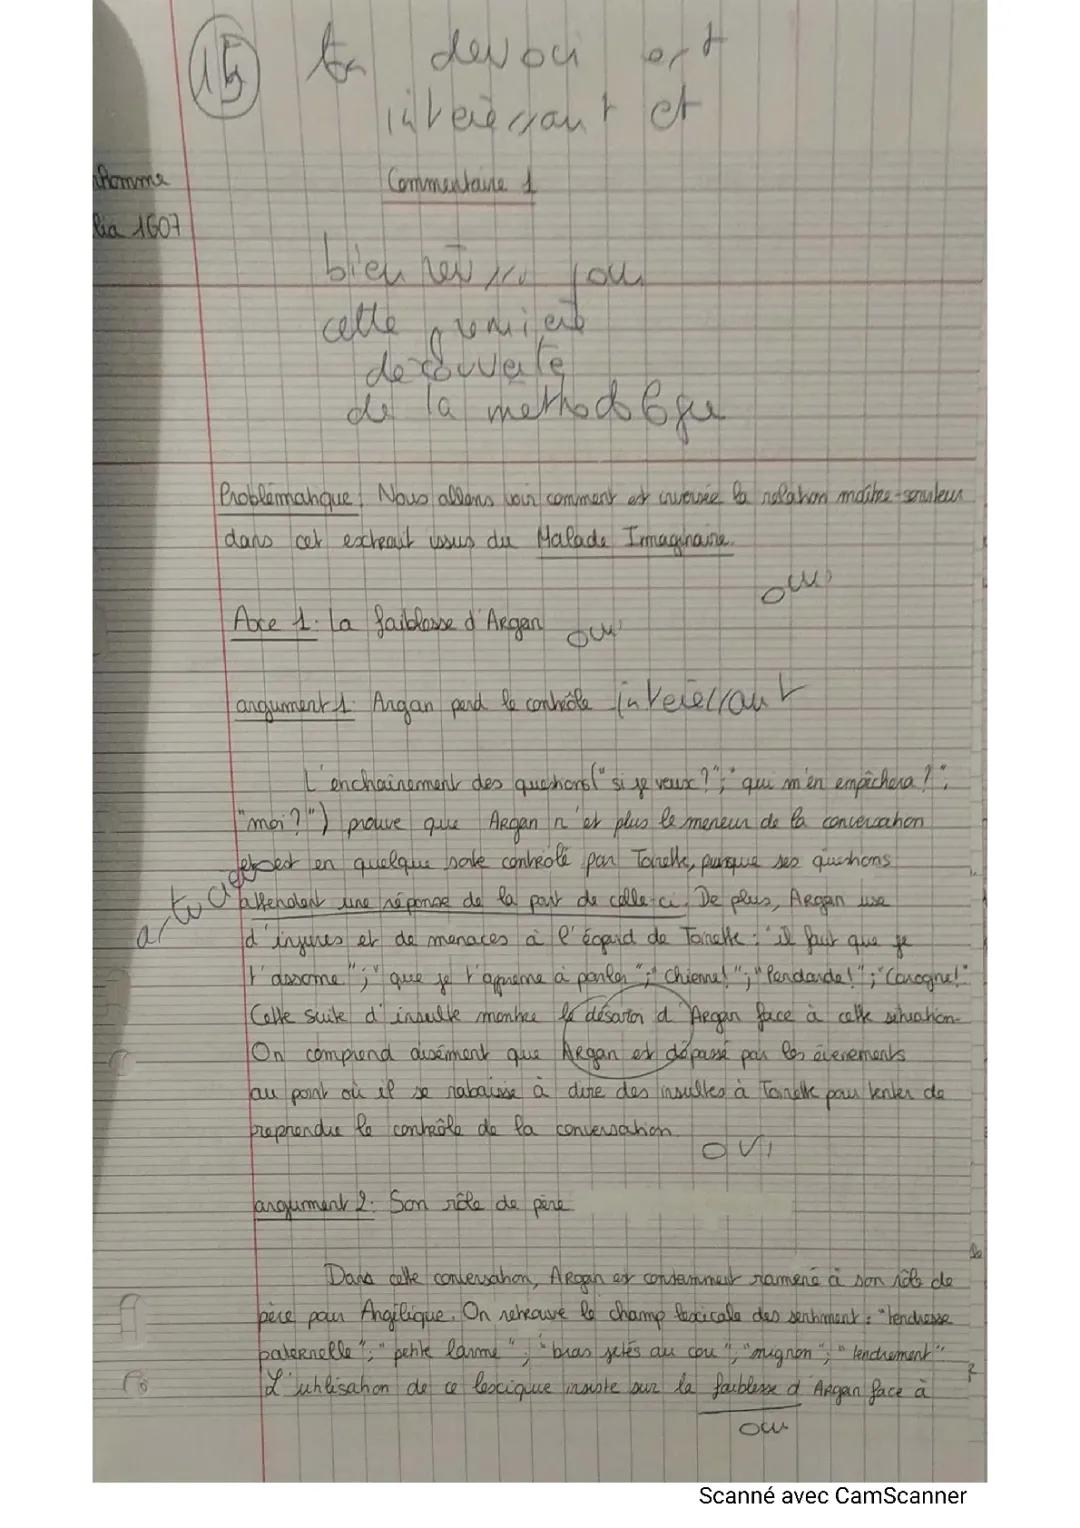 15 ton devoir est
intéressant et
Commentaire 1
1607
bien réussi pour
cette première
découverte
de la méthodologie
Problématique : Nous allons voir comment est inversée la relation maître-serviteur
dans cet extrait issus du Malade Imaginaire.
oui
Axe 1: La faiblesse d'Argan oui
argument 1: Argan perd le contrôle intéressant
L'enchaînement des questions ("si je veux ?"; "qui m'en empêchera ?";
"moi ?") prouve que Argan n'est plus le meneur de la conversation
et est en quelque sorte contrôlé par Toinette, puisque ses questions
attendent une réponse de la part de celle-ci. De plus, Argan use
d'injures et de menaces à l'égard de Toinette : "il faut que je
l'assome"; "que je t'apprene à parler"; "Chienne!"; "Pendarde!"; "Carogne!"
Cette suite d'insulte montre le désaroi d'Argan face à cette situation.
On comprend aisément que Argan est dépassé par les évenements
au point où il se rabaisse à dire des insultes à Toinette pour tenter de
reprendre le contrôle de la conversation.
OUI
argument 2: Son rôle de père
Dans cette conversation, Argan est constemment ramené à son rôle de
père pour Angélique. On retrouve le champ lexicale des sentiment : "tendresse
paternelle"; "petite larme"; "bras jetés au cou"; "mignon"; "tendrement"
L'utilisation de ce lexique insiste sur la faiblesse d'Argan face à
oui
Scanné avec CamScanner